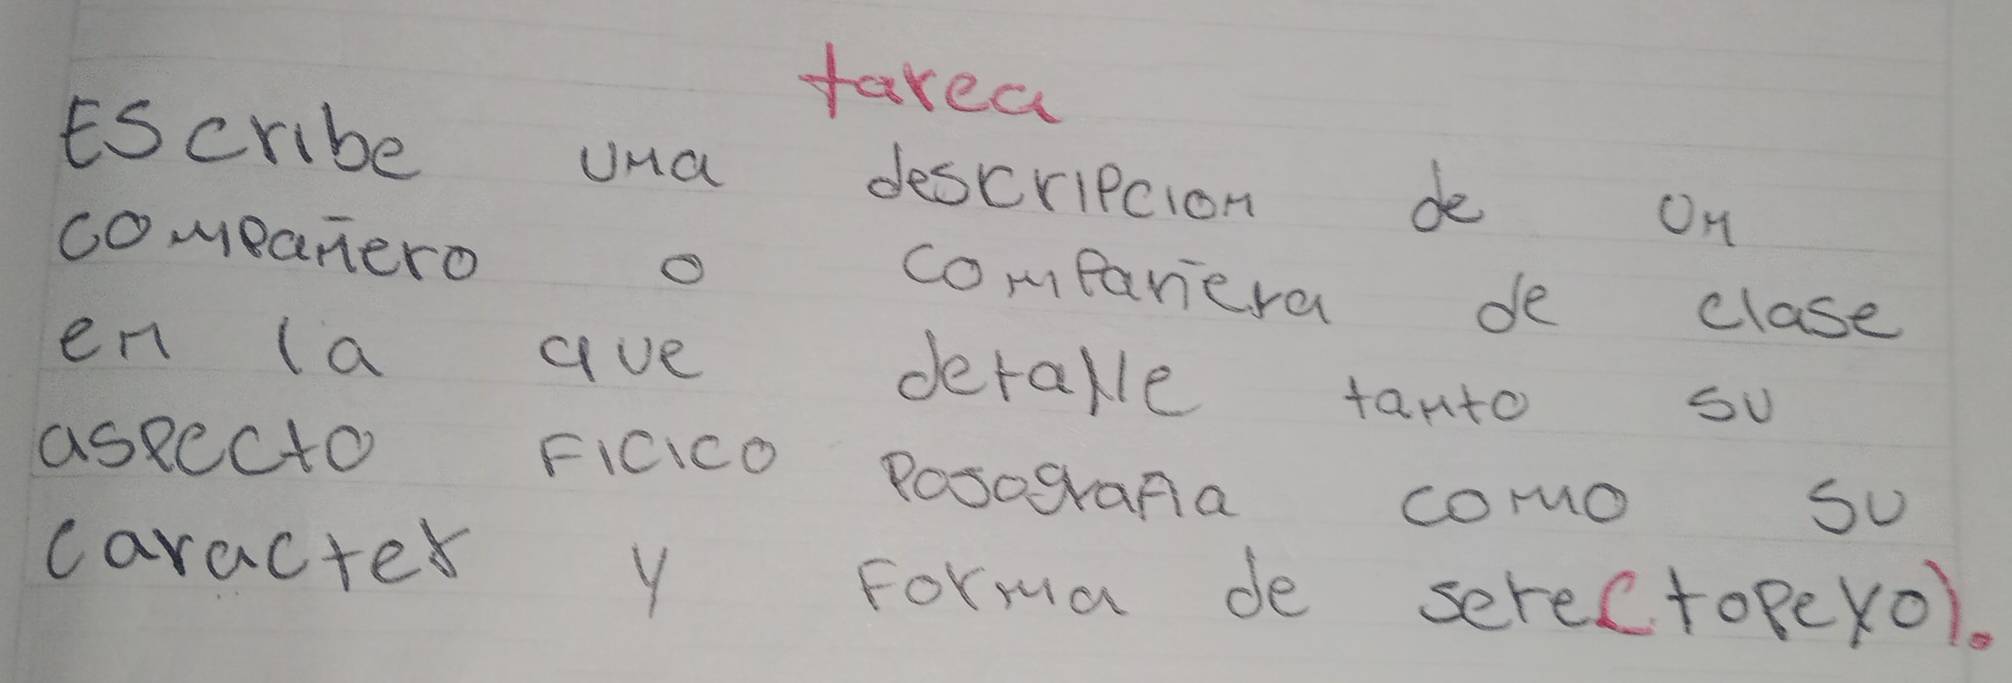 tarea
Escribe una descripcion de un
compañero o compañera de clase
en la que detalle tanto su
aspecto Ficico Posografia como su
caracter y Forma de sere(topeyo).